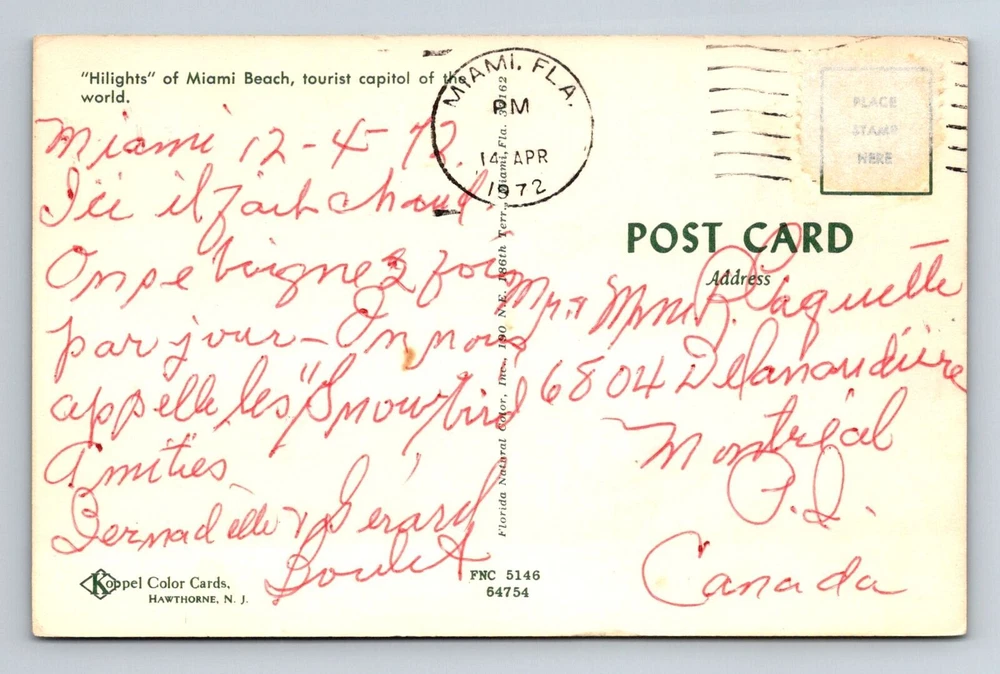 "Hilights" of Miami Beach, tourist capitol of the
world.
Miami 12-4-72.
Ici il fait chaud.
On se baigne 2 fois
par jour - On nous
appelle les "Snowbird
Amitiés
Bernadette & Gérard
Boulet
Koppel Color Cards,
HAWTHORNE, N. J.
MIAMI, FLA.
PM
14 APR
1972
Florida Natural Color, Inc., 190 N.E. 186th Terr., Miami, Fla. 33162
FNC 5146
64754
PLACE
STAMP
HERE
POST CARD
Address
Mr. & Mme R. Paquette
6804 Delanaudière
Montréal
P.Q.
Canada